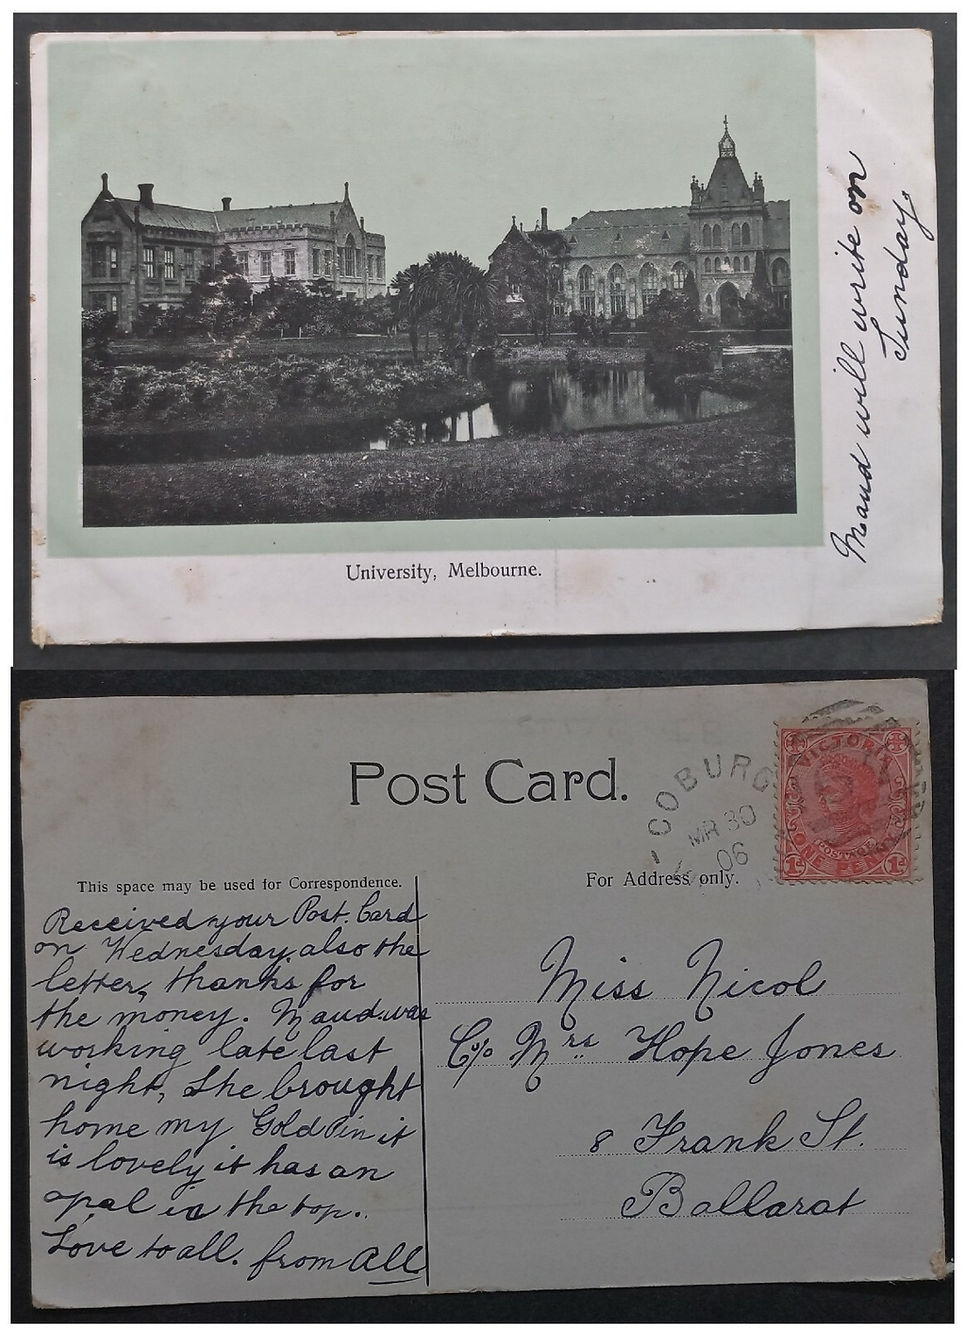 University, Melbourne.
Maud will write on
Sunday.
Post Card.
COBURG
MR 30
06
VICTORIA
POSTAGE
ONE PENNY
1d 1d
This space may be used for Correspondence.
For Address only.
Received your Post. Card
on Wednesday, also the
letter, thanks for
the money. Maud was
working late last
night, She brought
home my Gold Pin it
is lovely it has an
opal in the top.
Love to all. from All
Miss Nicol
C/o Mrs Hope Jones
8 Frank St.
Ballarat